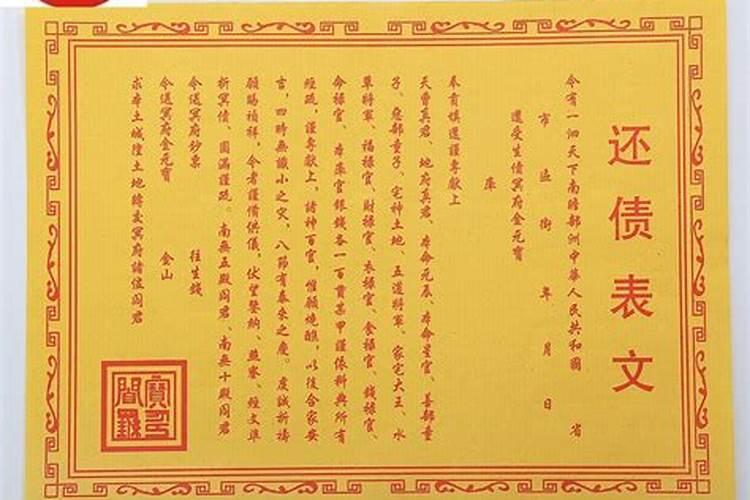 还债表文
今有一泗天下南瞻部洲中華人民共和國 省
市 區 街 年 月 日
還受生債冥府金元寶
庫
奉肯填還謹專獻上
天曹真君、地府真君、本命元辰、本命星官、善部童
子、惡部童子、宅神土地、五道將軍、家宅大王、水
草將軍、福祿官、財祿官、衣祿官、食祿官、錢祿官、
命祿官、本庫官銀錢各一百貫某甲謹依科典所有
經疏，謹專獻上，諸神百官，惟願燒醮，以後合家安
言，四時無讖小之灾，八節有泰來之慶。虔誠祈禱
願賜禎祥，今者謹備供儀，伏望鑒納、燕寮、經文準
折冥債、圆滿謹疏。南無五殿阎君、南無十殿阎君
今送冥府鈔票 往生錢
今送冥府金元寶 金山
求本土城隍土地轉交冥府諸位阎君